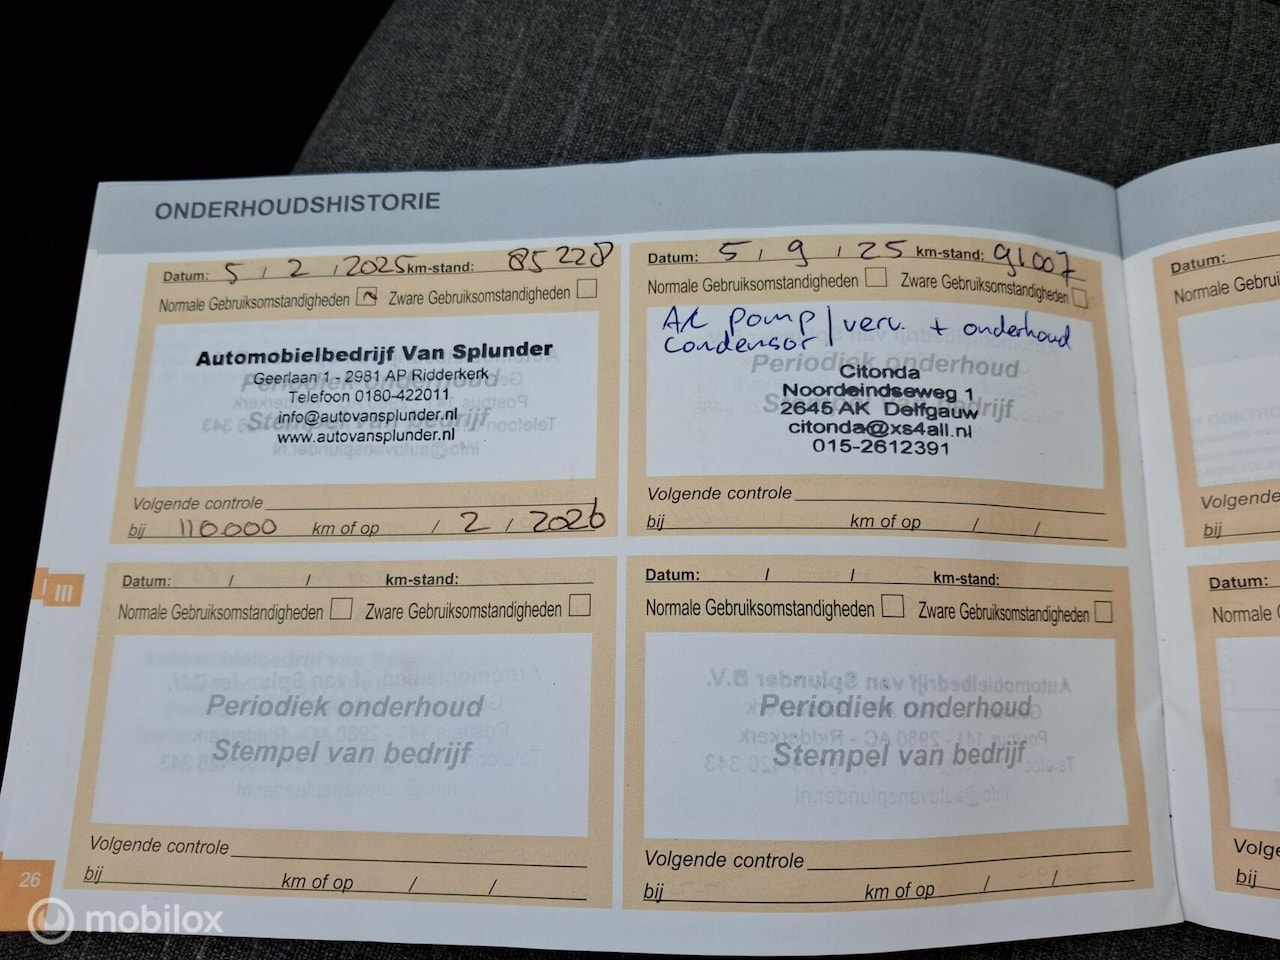 ONDERHOUDSHISTORIE
Datum: 5 / 2 / 2025 km-stand: 85228
Normale Gebruiksomstandigheden Zware Gebruiksomstandigheden
Automobielbedrijf Van Splunder
Geerlaan 1 - 2981 AP Ridderkerk
Telefoon 0180-422011
info@autovansplunder.nl
www.autovansplunder.nl
Periodiek onderhoud
Stempel van bedrijf
Volgende controle
bij 110.000 km of op / 2 / 2026
Datum: 5 / 9 / 25 km-stand: 91007
Normale Gebruiksomstandigheden Zware Gebruiksomstandigheden
AC pomp / verv. + onderhoud
condensor
Periodiek onderhoud
Stempel van bedrijf
Citonda
Noordeindseweg 1
2645 AK Delfgauw
citonda@xs4all.nl
015-2612391
Volgende controle
bij km of op / /
Datum: / / km-stand:
Normale Gebruiksomstandigheden Zware Gebruiksomstandigheden
Periodiek onderhoud
Stempel van bedrijf
Volgende controle
bij km of op / /
Datum: / / km-stand:
Normale Gebruiksomstandigheden Zware Gebruiksomstandigheden
Periodiek onderhoud
Stempel van bedrijf
Volgende controle
bij km of op / /
Datum:
Normale Gebrui
Volgende
bij
Datum:
Normale G
Volge
bij
III
26
mobilox